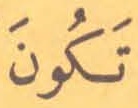 تَكُونَ